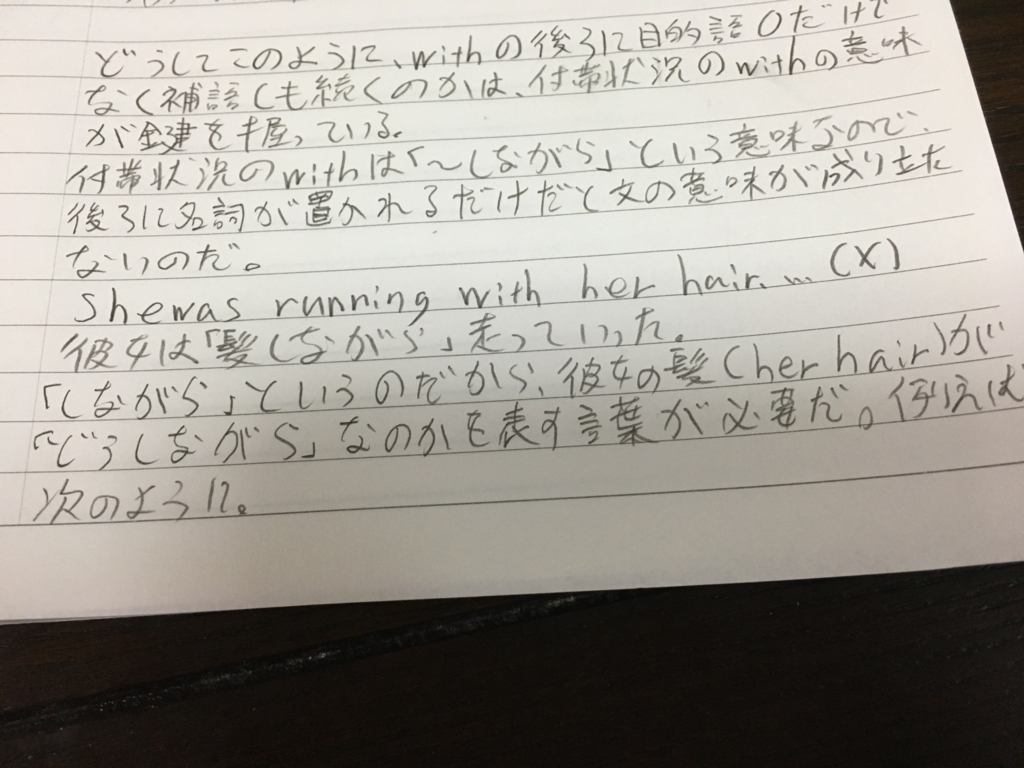 どうしてこのように、withの後ろに目的語Oだけで
なく補語Cも続くのかは、付帯状況のwithの意味
が鍵を握っている。
付帯状況のwithは「〜しながら」という意味なので、
後ろに名詞が置かれるだけだと文の意味が成り立た
ないのだ。
She was running with her hair.... (X)
彼女は「髪しながら」走っていった。
「しながら」というのだから、彼女の髪(her hair)が
「どうしながら」なのかを表す言葉が必要だ。例えば
次のように。